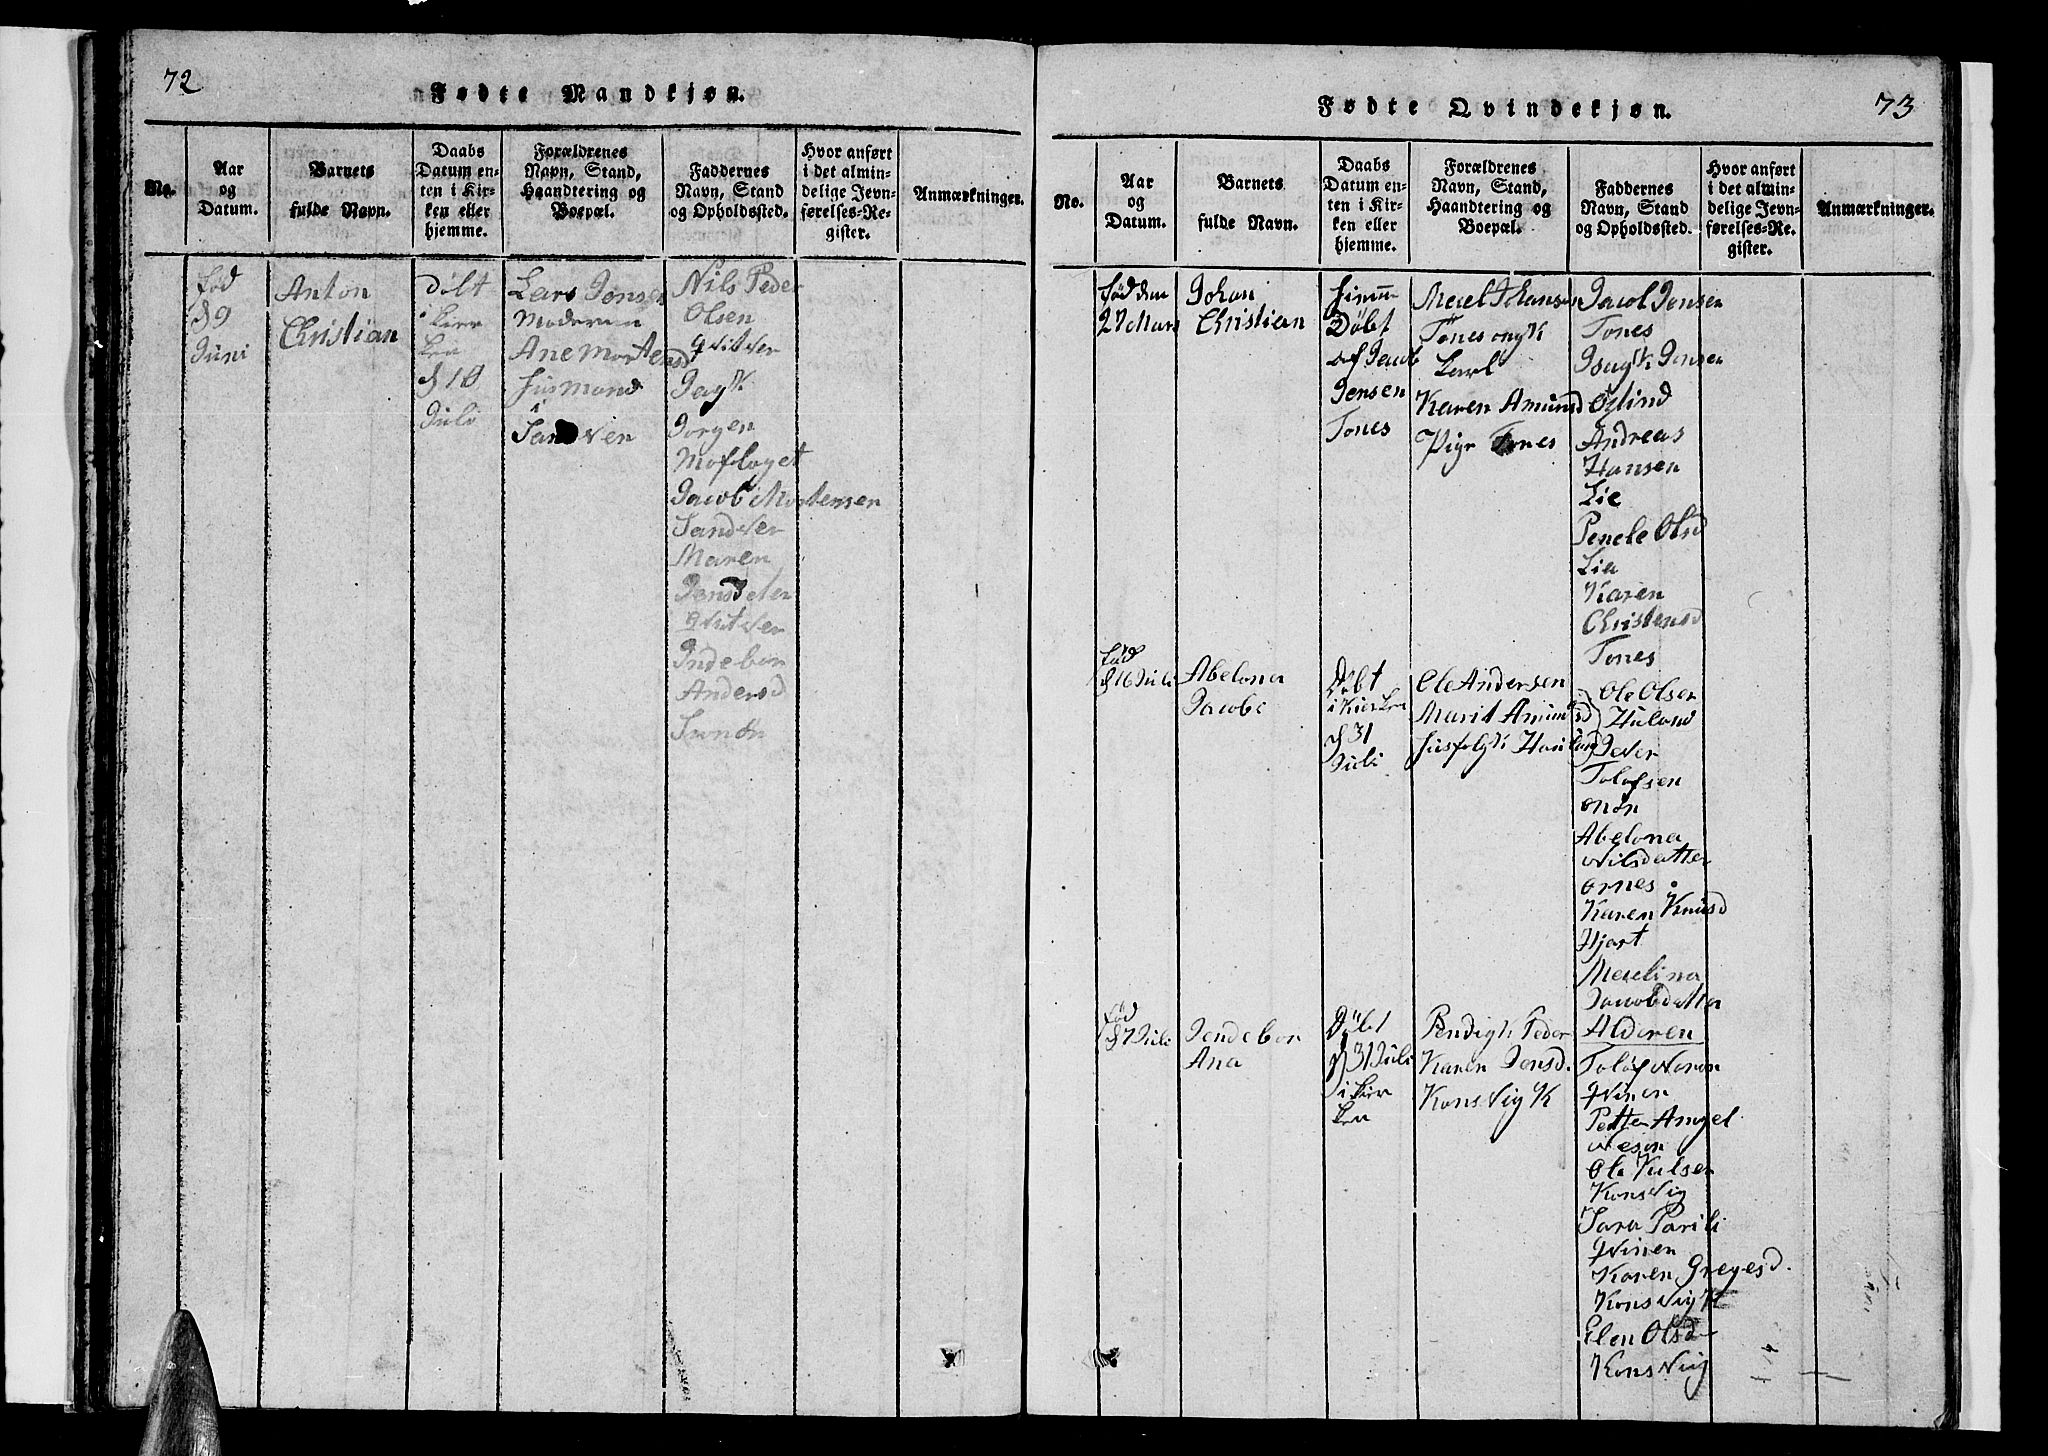 72
Fødte Mandkjøn.
No.
Aar
og
Datum.
Barnets
fulde Navn.
Daabs
Datum en-
ten i Kir-
ken eller
hjemme.
Forældrenes
Navn, Stand,
Haandtering og
Boepæl.
Faddernes
Navn, Stand
og Opholdssted.
Hvor anført
i det almin-
delige Jevn-
førelses-Re-
gister.
Anmærkninger.
fød
d 9
Juni
Anton
Christian
Døbt
i kier
ken
d 10
Juli
Lars Jonsen
Moderen
Ane Mortensd
Husmand
i
Sandver
Nils Peder
Olsen
qvitver
Jørgen
Jacob Mortensen
Sandver
Maren
Jensdeter
qvitver
Indebor
Andersd
73
Fødte Qvindekjøn.
No.
Aar
og
Datum.
Barnets
fulde Navn.
Daabs
Datum en-
ten i Kir-
ken eller
hjemme.
Forældrenes
Navn, Stand,
Haandtering og
Boepæl.
Faddernes
Navn, Stand
og Opholdssted.
Hvor anført
i det almin-
delige Jevn-
førelses-Re-
gister.
Anmærkninger.
fød den
27 Mars
Johan
Christian
Døbt
af Jacob
Jensen
Tones
Tones ongk
Karl
Karen Amunsd
Pige Tones
Jacob Jensen
Tones
Jensen
Andreas
Hansen
Lie
Penele Olsd
Lia
Karen
Christensd
Tones
fød
d 16 Juli
Abelona
Jacobe
Døbt
i Kierken
d 31
Juli
Ole Andersen
Marit Amunsd
Husfolgk
Ole Olsen
Huland
Jever
Tolofsen
Abelona
Nilsdatter
ornes
Karen Knusd
Hjart
Jacobdatter
Alderen
fød
d 7 Juli
Jendebor
Ana
Døbt
d 31 Juli
i kier
ken
Pendigk Peder
Karen Jensd.
KonsVigk
Petter Amgel
Ole
KonsVig
Sara
Karen Gregesd.
KonsVigk
Elen Olsd
KonsVig